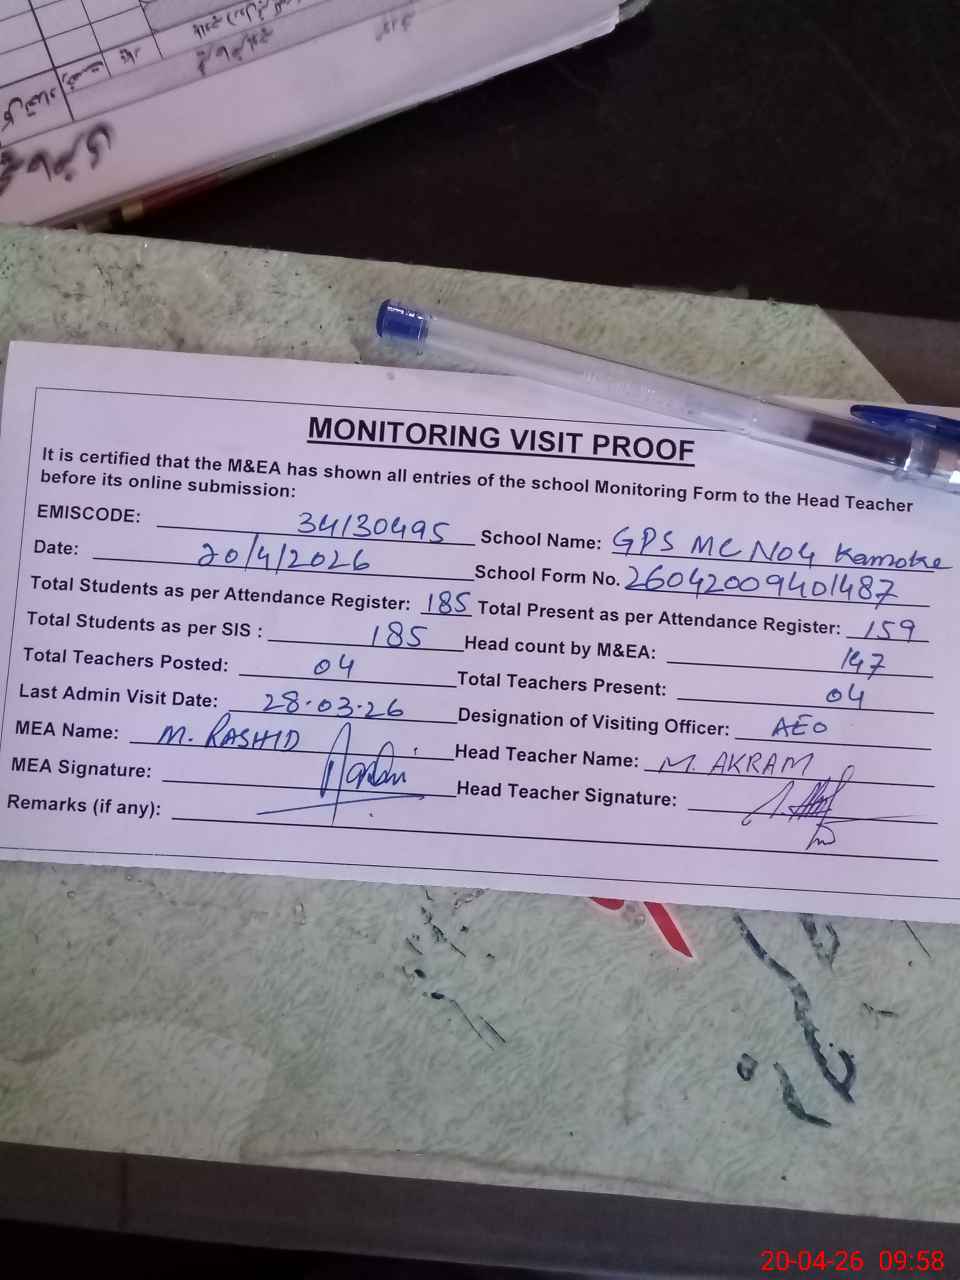 MONITORING VISIT PROOF
It is certified that the M&EA has shown all entries of the school Monitoring Form to the Head Teacher
before its online submission:
EMISCODE: 34130495 School Name: GPS MC No4 Kamoke
Date: 20/4/2026 School Form No. 26042009401487
Total Students as per Attendance Register: 185 Total Present as per Attendance Register: 159
Total Students as per SIS : 185 Head count by M&EA: 147
Total Teachers Posted: 04 Total Teachers Present: 04
Last Admin Visit Date: 28.03.26 Designation of Visiting Officer: AEO
MEA Name: M. RASHID Head Teacher Name: M. AKRAM
MEA Signature: Head Teacher Signature:
Remarks (if any):
20-04-26 09:58